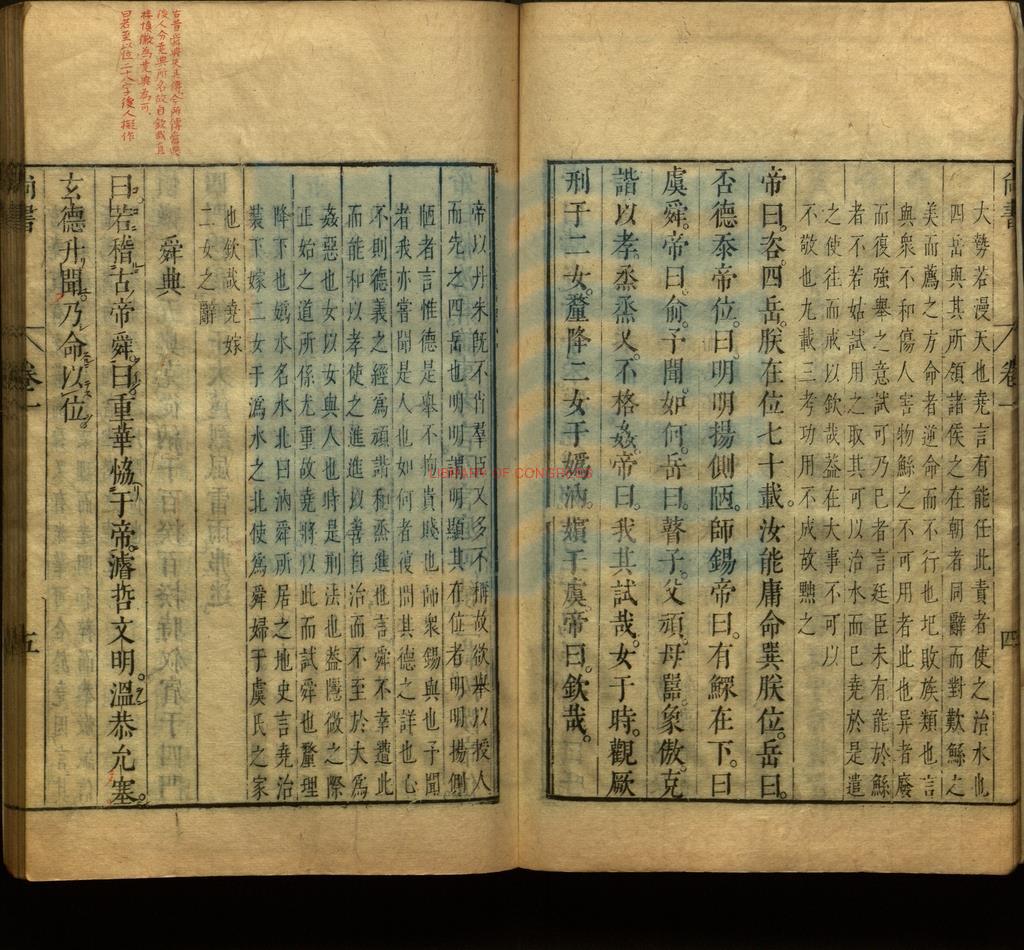 尚書
卷一
四
大勢若漫天也堯言有能任此責者使之治水也
四岳與其所領諸侯之在朝者同辭而對歎鯀之
美而薦之方命者逆命而不行也圮敗族類也言
與衆不和傷人害物鯀之不可用者此也异者廢
而復強舉之意試可乃已者言廷臣未有能於鯀
者不若姑試用之取其可以治水而已堯於是遣
之使往而戒以欽哉蓋在大事不可以
不敬也九載三考功用不成故黜之
帝曰咨四岳朕在位七十載汝能庸命巽朕位岳曰
否德忝帝位曰明明揚側陋師錫帝曰有鰥在下曰
虞舜帝曰俞予聞如何岳曰瞽子父頑母嚚象傲克
諧以孝烝烝乂不格姦帝曰我其試哉女于時觀厥
刑于二女釐降二女于嬀汭嬪于虞帝曰欽哉
帝以丹朱旣不肖羣臣又多不稱故欲舉以授人
而先之四岳也明明謂明顯其在位者明明揚側
陋者言惟德是舉不拘貴賤也師衆錫與也予聞
者我亦嘗聞是人也如何者復問其德之詳也心
不則德義之經爲頑諧和烝進也言舜不幸遭此
而能和以孝使之進進以善自治而不至於大爲
姦惡也女以女與人也時是刑法也蓋隱微之際
正始之道所係尤重故堯將以此而試舜也釐理
降下也嬀水名水北曰汭舜所居之地史言堯治
裝下嫁二女于嬀水之北使爲舜婦于虞氏之家
也欽哉堯嫁
二女之辭
舜典
曰若稽古帝舜曰重華協于帝濬哲文明溫恭允塞
玄德升聞乃命以位
尚書
卷一
五
後人分堯典所名故自欽哉直
接慎徽爲堯典爲可
曰若至以位二十八字後人擬作
LIBRARY OF CONGRESS